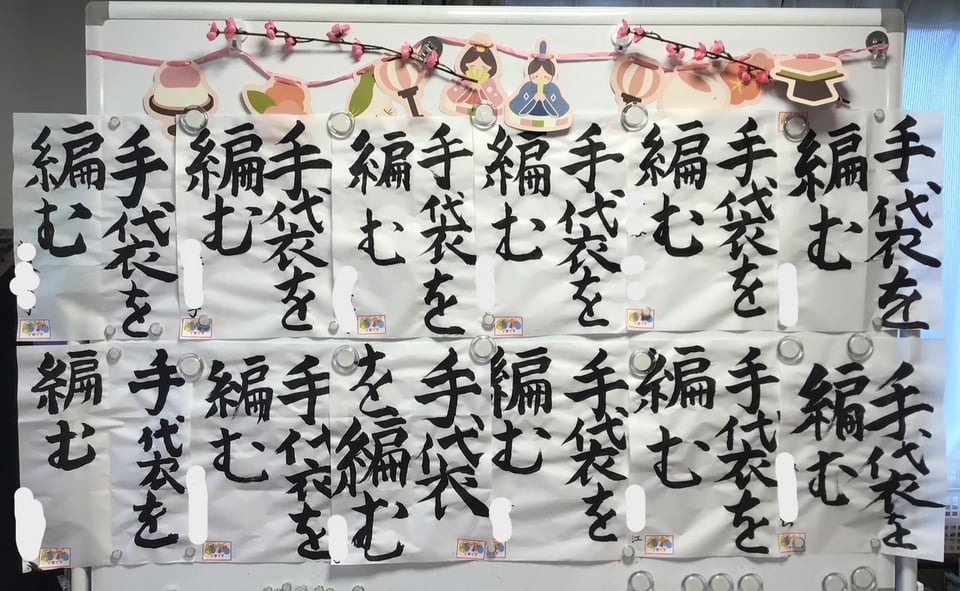 手袋を
編む
手袋を
編む
手袋を
編む
手袋を
編む
手袋を
編む
手袋を
編む
手袋を
編む
手袋を
編む
手袋を
編む
手袋
を編む
手袋を
編む
手袋を
編む
江